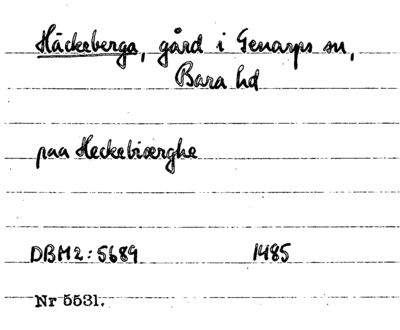 Häckeberga, gård i Genarps sn,
Bara hd
paa Heckebiærghe
DBM2:5689 1485
Nr 5531.